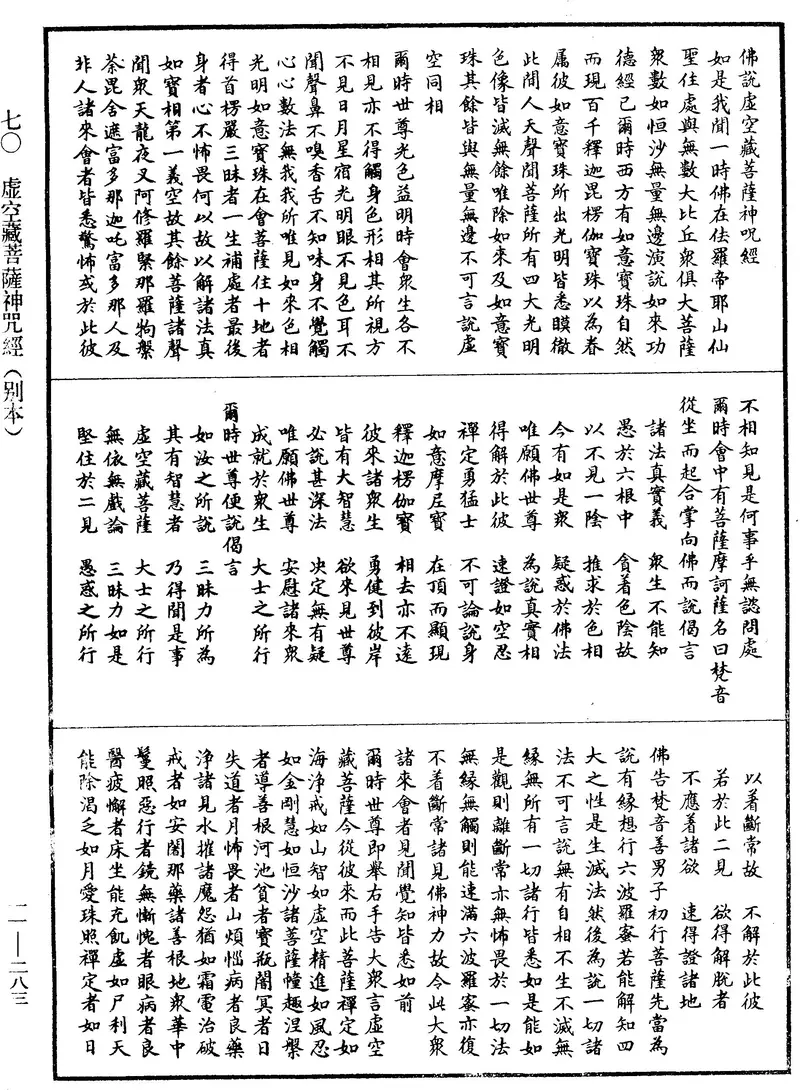 佛說虛空藏菩薩神呪經
如是我聞一時佛在佉羅帝耶山仙
聖住處與無數大比丘衆俱大菩薩
衆數如恒沙無量無邊演說如來功
德經已爾時西方有如意寶珠自然
而現百千釋迦毘楞伽寶珠以為眷
属彼如意寶珠所出光明皆悉暎徹
此間人天聲聞菩薩所有四大光明
色像皆滅無餘唯除如來及如意寶
珠其餘皆與無量無邊不可言說虛
空同相
爾時世尊光色益明時會衆生各不
相見亦不得觸身色形相其所視方
不見日月星宿光明眼不見色耳不
聞聲鼻不嗅香舌不知味身不覺觸
心心數法無我我所唯見如來色相
光明如意寶珠在會菩薩住十地者
得首楞嚴三昧者一生補處者最後
身者心不怖畏何以故以解諸法真
如實相第一義空故其餘菩薩諸聲
聞衆天龍夜叉阿修羅緊那羅鳩槃
荼毘舍遮富多那迦吒富多那人及
非人諸來會者皆悉驚怖或於此彼
不相知見是何事乎無諮問處
爾時會中有菩薩摩訶薩名曰梵音
從坐而起合掌向佛而說偈言
諸法真實義　衆生不能知
愚於六根中　貪着色陰故
以不見一陰　推求於色相
今有如是衆　疑惑於佛法
唯願佛世尊　為說真實相
得解於此彼　速證如空忍
禪定勇猛士　不可論說身
如意摩尼寶　在頂而顯現
釋迦楞伽寶　相去亦不遠
彼來諸衆生　勇健到彼岸
皆有大智慧　欲來見世尊
必說甚深法　决定無有疑
唯願佛世尊　安慰諸來衆
成就於衆生　大士之所行
爾時世尊便說偈言
如汝之所說　三昧力所為
其有智慧者　乃得聞是事
虛空藏菩薩　大士之所行
無依無戲論　三昧力如是
堅住於二見　愚惑之所行
以着斷常故　不解於此彼
若於此二見　欲得解脫者
不應着諸欲　速得證諸地
佛告梵音善男子初行菩薩先當為
說有緣想行六波羅蜜若能解知四
大之性是生滅法然後為說一切諸
法不可言說無有自相不生不滅無
緣無所有一切諸行皆悉如是能如
是觀則離斷常亦無怖畏於一切法
無緣無觸則能速滿六波羅蜜亦復
不着斷常諸見佛神力故令此大衆
諸來會者見聞覺知皆悉如前
爾時世尊即舉右手告大衆言虛空
藏菩薩今從彼來而此菩薩禪定如
海淨戒如山智如虛空精進如風忍
如金剛慧如恒沙諸菩薩幢趣涅槃
者導善根河池貧者寶瓶闇冥者日
失道者月怖畏者山煩惱病者良藥
淨諸見水摧諸魔怨猶如霜電治破
戒者如安闍那藥諸善根地衆華中
鬘照惡行者鏡無慚愧者眼病者良
醫疲懈者床坐能充飢虛如尸利天
能除渴乏如月愛珠照禪定者如日
七〇　虛空藏菩薩神咒經（別本）
一一—二八三